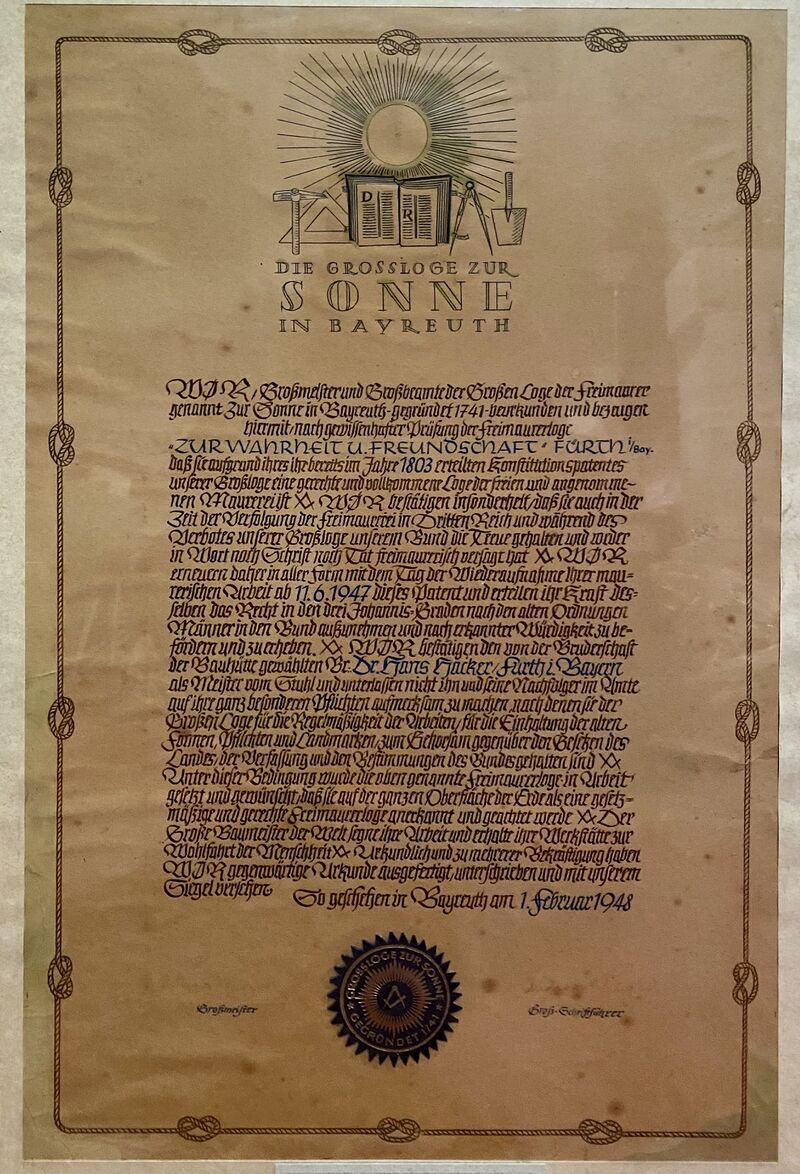 D R
DIE GROSSLOGE ZUR
SONNE
IN BAYREUTH
WIR, Großmeister und Großbeamte der Großen Loge der Freimaurer
genannt Zur Sonne in Bayreuth-gegründet 1741-beurkunden und bezeugen
hiermit, nach gewissenhafter Prüfung der Freimaurerloge
"ZUR WAHRHEIT U. FREUNDSCHAFT" FÜRTH i/Bay.
daß sie aufgrund ihres ihr bereits im Jahre 1803 erteilten Konstitutionspatentes
unserer Großloge eine gerechte und vollkommene Loge der freien und angenomme-
nen Maurerei ist XX WIR bestätigen insonderheit, daß sie auch in der
Zeit der Verfolgung der Freimauerei in Dritten Reich und während des
Verbotes unserer Großloge unserem Bund die Treue gehalten und weder
in Wort noch Schrift noch Tat freimaurerisch versagt hat XX WIR
erneuern daher in aller Form mit dem Tag der Wiederaufnahme Ihrer mau-
rerischen Arbeit ab 11.6.1947 dieses Patent und erteilen ihr Kraft des-
selben das Recht in den drei Johannis-Graden nach den alten Ordnungen
Männer in den Bund aufzunehmen und nach erkannter Würdigkeit zu be-
fördern und zu erheben. XX WIR bestätigen den von der Bruderschaft
der Bauhütte gewählten Br. Dr. Hans Hacker, Fürth i. Bayern
als Meister vom Stuhl und unterlassen nicht ihn und seine Nachfolger im Amte
auf ihre ganz besonderen Pflichten aufmerksam zu machen, nach denen sie der
Großen Loge für die Regelmäßigkeit der Arbeiten, für die Einhaltung der alten
Formen, Pflichten und Landmarken, zum Gehorsam gegenüber den Gesetzen des
Landes, der Verfassung und den Bestimmungen des Bundes gehalten sind XX
Unter dieser Bedingung wurde die oben genannte Freimaurerloge in Arbeit
gesetzt und gewünscht, daß sie auf der ganzen Oberfläche der Erde als eine gesetz-
mäßige und gerechte Freimaurerloge anerkannt und geachtet werde XX Der
Große Baumeister der Welt segne ihre Arbeit und erhalte ihre Werkstätte zur
Wohlfahrt der Menschheit XX Urkundlich und zu mehrerer Bekräftigung haben
WIR gegenwärtige Urkunde ausgefertigt, unterschrieben und mit unserem
Siegel versehen
So geschehen in Bayreuth am 1. Februar 1948
GROSSLOGE ZUR SONNE
GEGRÜNDET 1741
Großmeister
Groß-Schriftführer